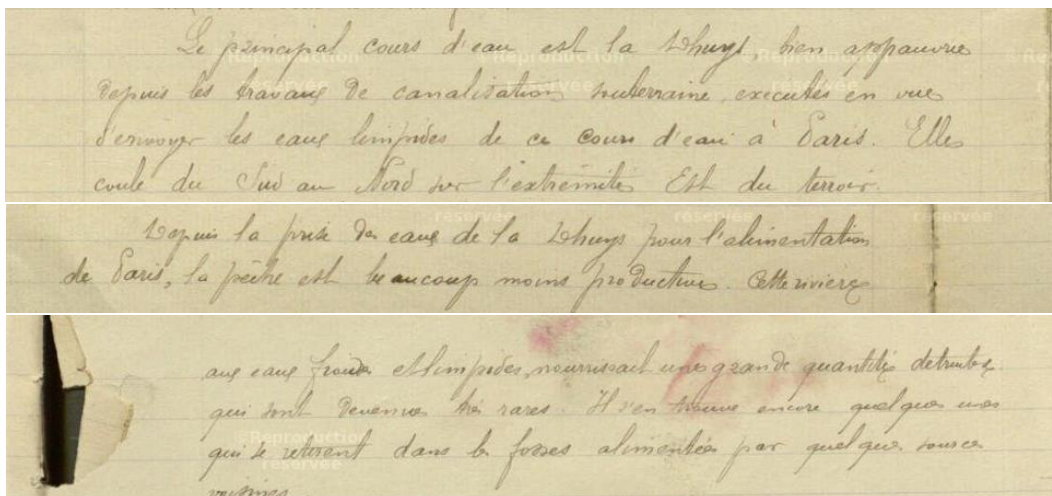 Le principal cours d'eau est la Dhuys, bien appauvrie
depuis les travaux de canalisation souterraine, executés en vue
d'envoyer les eaux limpides de ce cours d'eau à Paris. Elle
coule du Sud au Nord sur l'extrémité Est du terroir.
Depuis la prise des eaux de la Dhuys pour l'alimentation
de Paris, la pêche est beaucoup moins productive. Cette rivière
aux eaux froides et limpides, nourrissait une grande quantité de truites
qui sont devenues très rares. Il s'en trouve encore quelques unes
qui se retirent dans les fosses alimentées par quelques sources
voisines